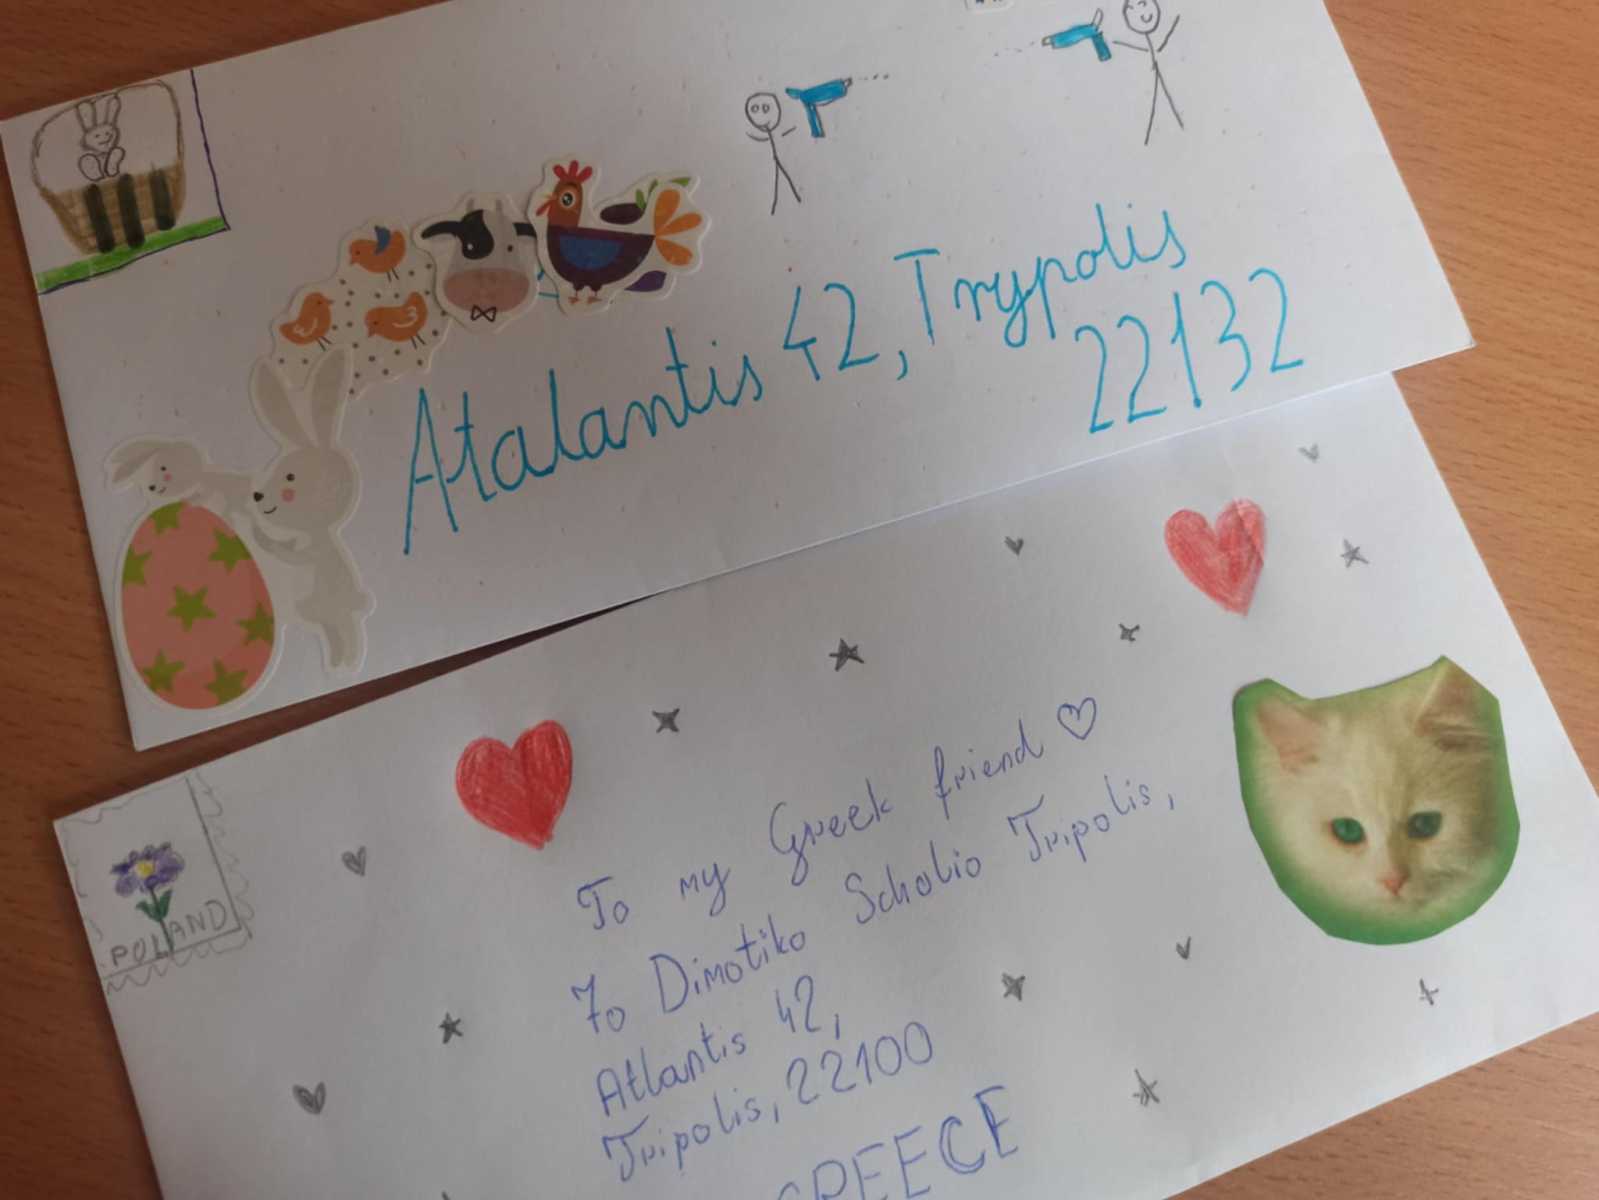 Atalantis 42, Trypolis
22132
POLAND
To my Greek friend ♡
7o Dimotiko Scholio Tripolis,
Atlantis 42,
Tripolis, 22100
GREECE